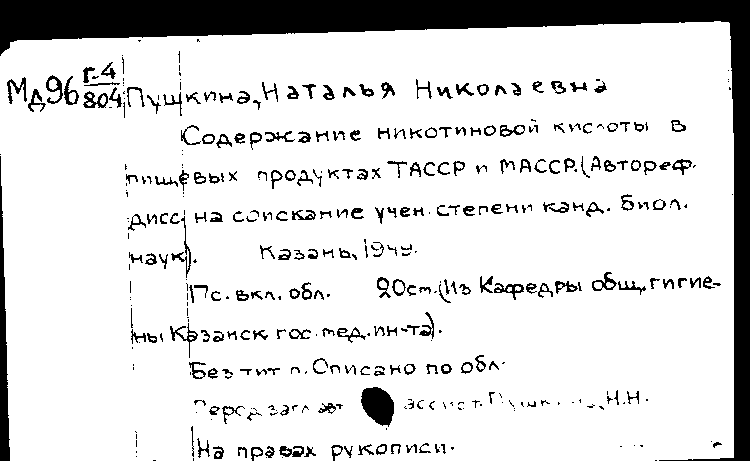 Мд96 г.-4/804 Пушкина, Наталья Николаевна
Содержание никотиновой кислоты в
пищевых продуктах ТАССР и МАССР. (Автореф.
дисс. на соискание учен. степени канд. биол.
наук). Казань, 1949.
Пс. вкл. обл. 20 cm. (Из Кафедры общ. гигие-
ны Казанск. гос. мед. ин-та).
Без тит. л. Описано по обл.
Перед загл. авт. Н.Н.
На правах рукописи.